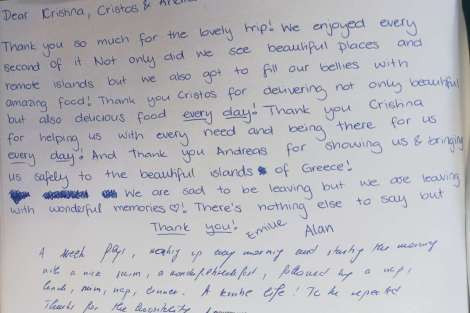 Dear Krishna, Cristos &
Thank you so much for the lovely trip! We enjoyed every
second of it. Not only did we see beautiful places and
remote islands but we also got to fill our bellies with
amazing food! Thank you Cristos for delivering not only beautiful
but also delicious food every day! Thank you Crishna
for helping us with every need and being there for us
every day! And Thank you Andreas for showing us & bringing
us safely to the beautiful islands of Greece!
We are sad to be leaving but we are leaving
with wonderful memories ♡! There's nothing else to say but
Thank you! Emilie Alan
A week , waking up every morning and starting the morning
with a nice swim, a wonderful breakfast, followed by a nap,
lunch, swim, nap, dinner. A life! To be repeated
Thanks for the hospitality